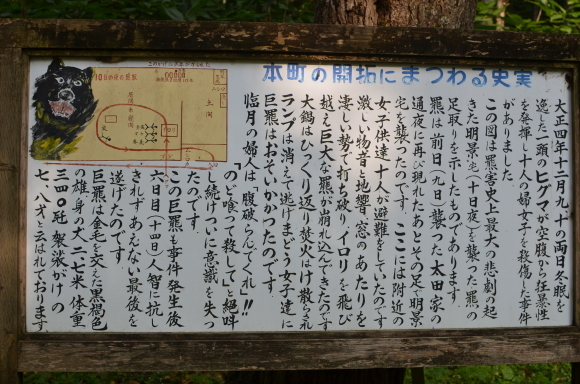 本町の開拓にまつわる史実
大正四年十二月九、十の両日冬眠を
逸した一頭のヒグマが空腹から狂暴性
を発揮し十人の婦女子を殺傷した事件
がありました
この図は羆害史上最大の悲劇の起
きた明景宅(十日夜)を襲った羆の
足取りを示したものであります。
羆は前日(九日)襲った太田家の
通夜に再び現れたあとその足で明景
宅を襲ったのです ここには附近の
女子供達十人が避難をしていたのです
激しい物音と地響、窓のあたりを
凄しい勢で打ち破り、イロリを飛び
越え巨大な羆が崩れ込んできたのです
大鍋はひっくり返り焚火はけ散らされ
ランプは消えて逃げまどう女子達に
巨羆はおそいかかったのです。
臨月の婦人は「腹破らんでくれ!!
のど喰って殺して」と絶叫
し続けついに意識を失っ
たのです
この巨羆も事件発生後
六日目(十四日)人智に抗し
きれずあえない最後を
遂げたのです
巨羆は金毛を交えた黒褐色
の雄、身の丈二、七米 体重
三四〇瓩 袈裟がけの
七、八才と云はれております
10日めの足取
土間